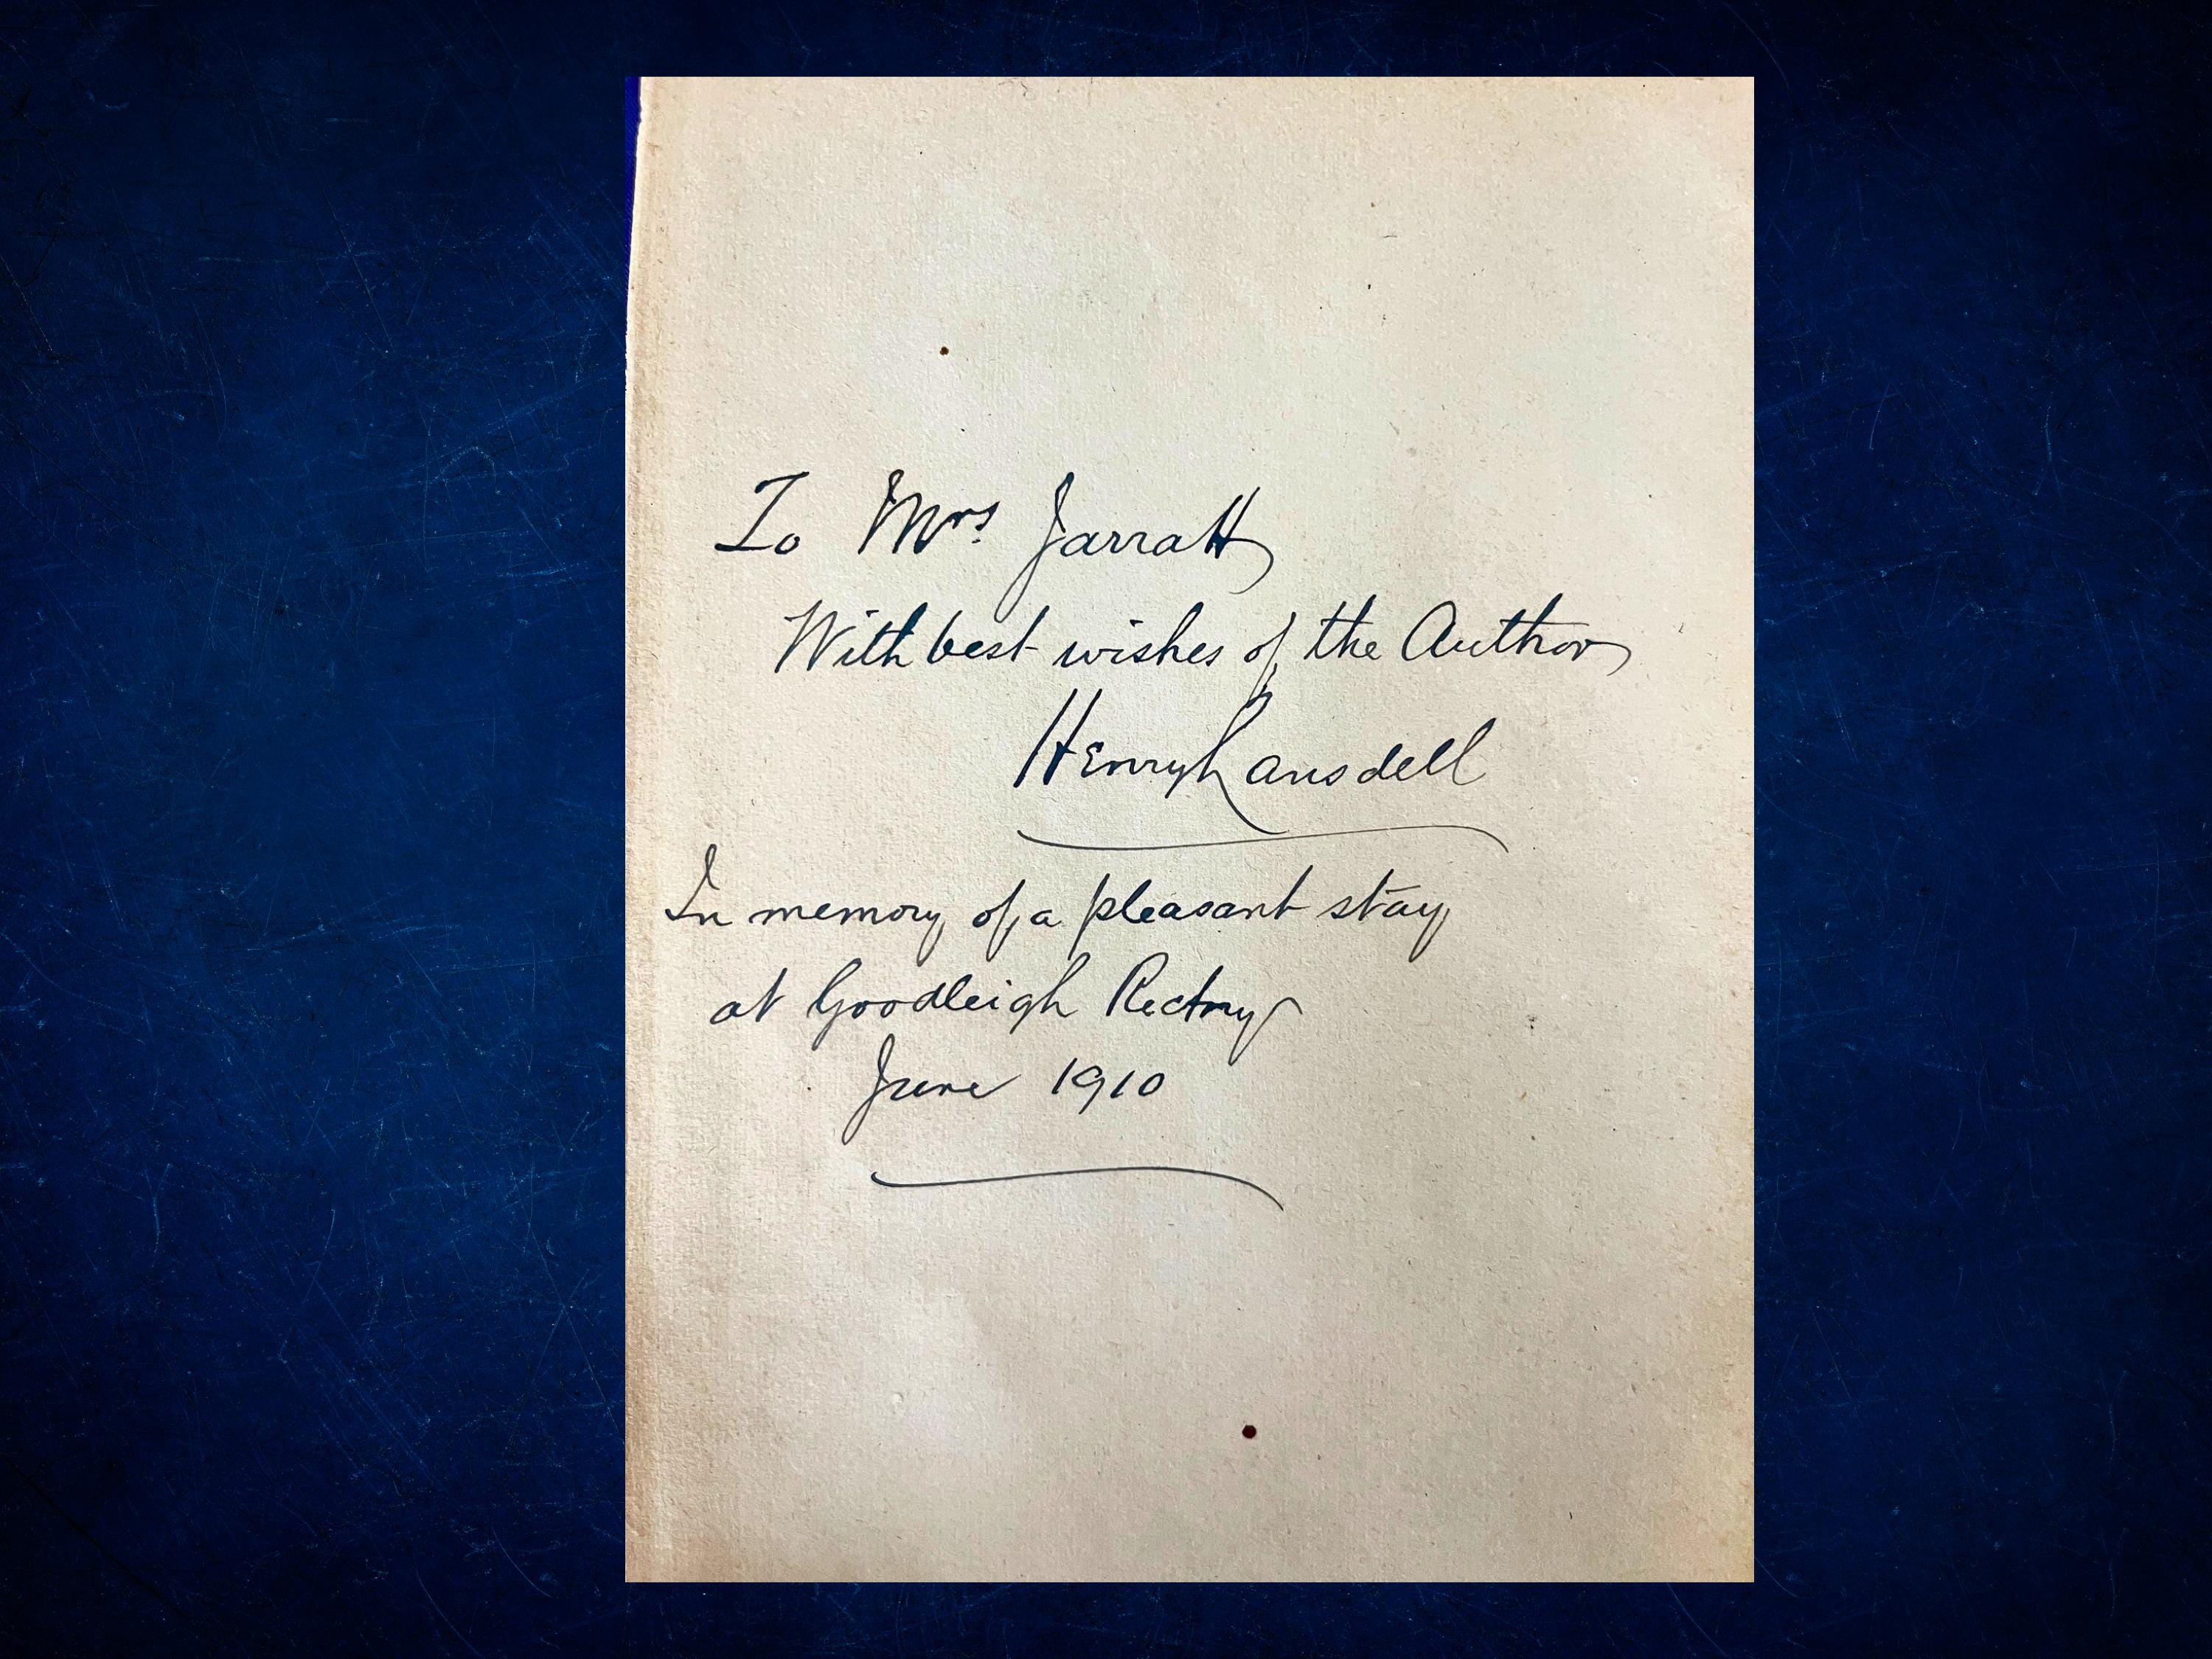 To Mrs. Jarratt
With best wishes of the Author
Henry Lansdell
In memory of a pleasant stay
at Goodleigh Rectory
June 1910